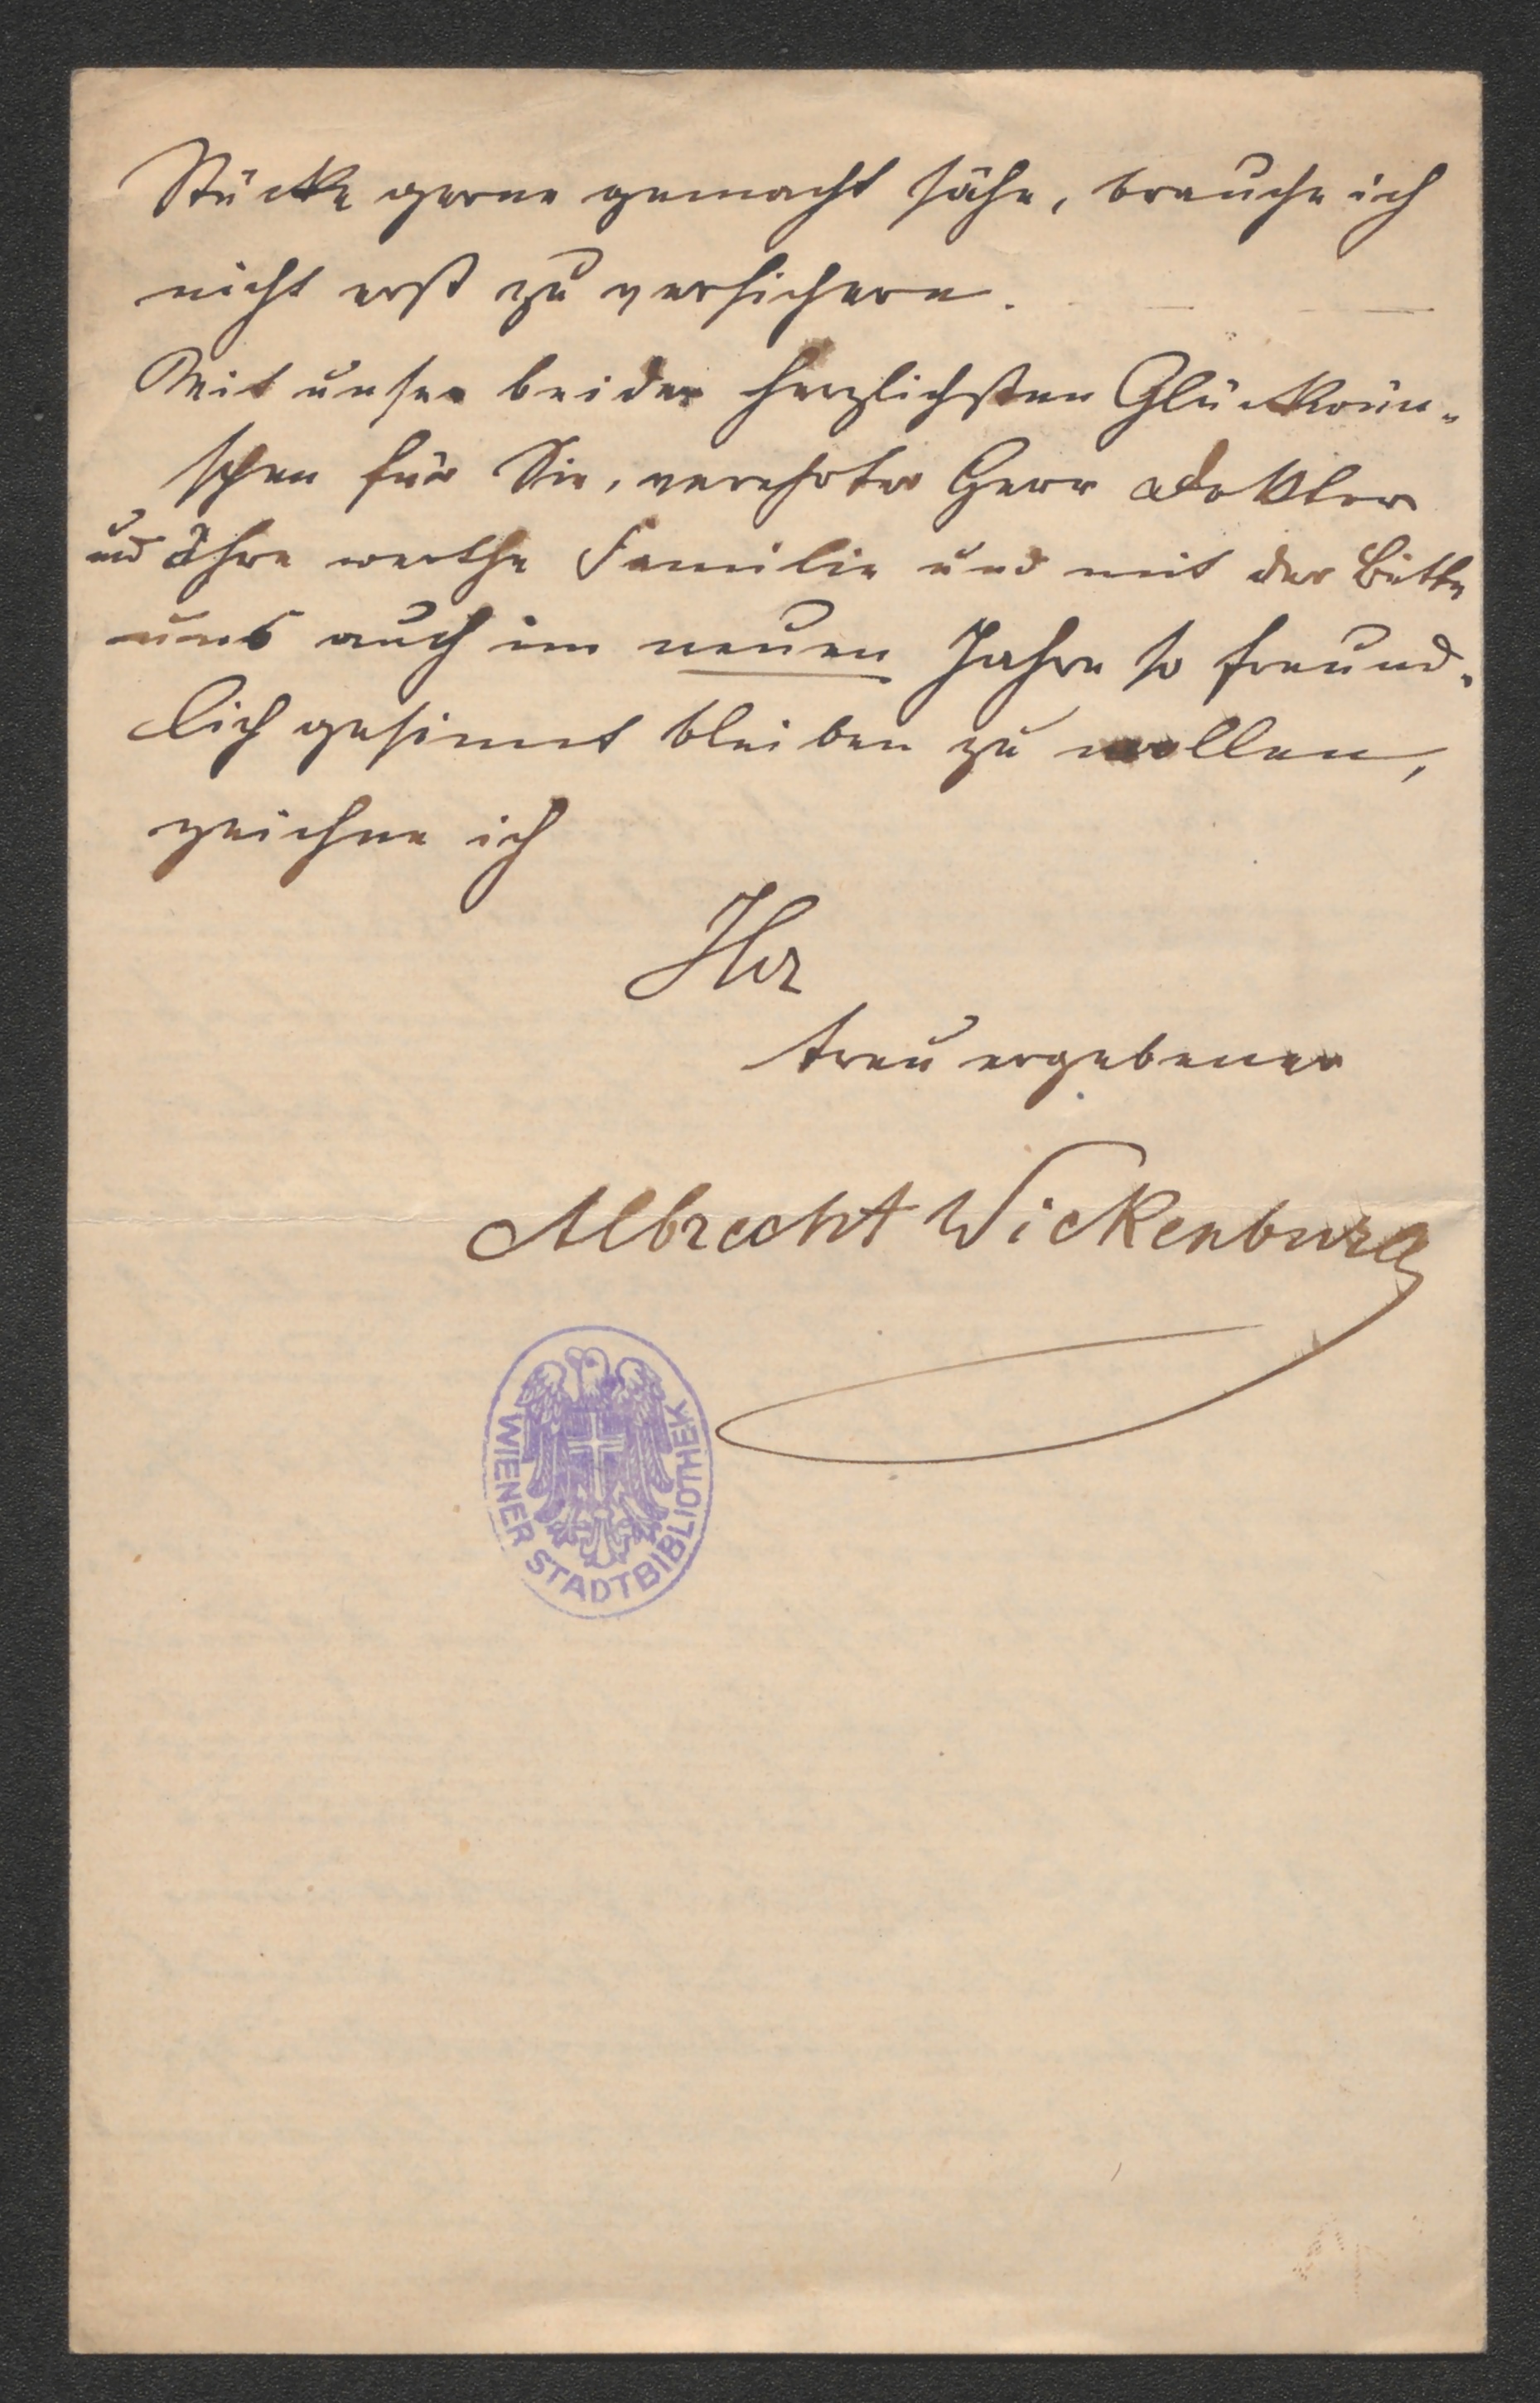 Stücke gerne gemacht sähe, brauche ich
nicht erst zu versichern.
Mit unser beider herzlichsten Glückwün-
schen für Sie, verehrter Herr Doktor
und Ihre werthe Familie und mit der Bitte
uns auch im neuen Jahre so freund-
lich gesinnt bleiben zu wollen,
zeichne ich
Ihr
treu ergebener
Albrecht Wickenburg
WIENER STADTBIBLIOTHEK